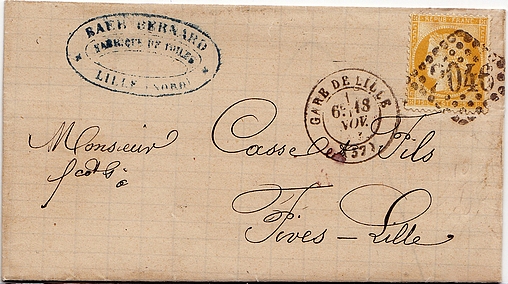 BAER BERNARD
FABRIQUE DE TOILES
LILLE (NORD)
REPUB. FRANC.
2046
GARE DE LILLE
6E 18
NOV.
(57)
Monsieur Casse & Fils
Fives-Lille